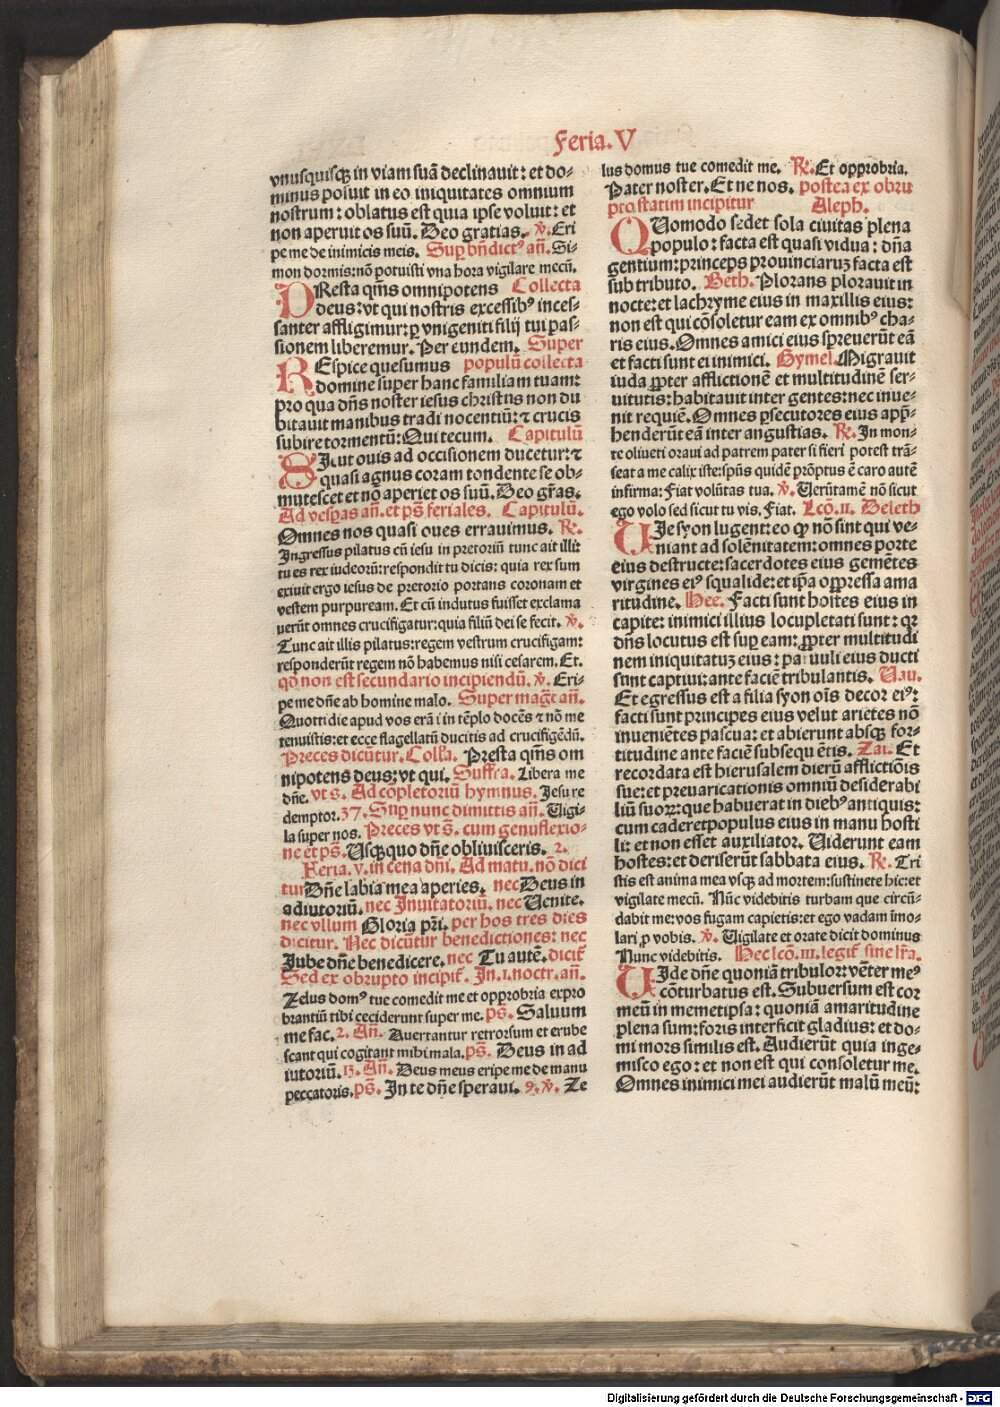 Feria. V
vnusquisqꝫ in viam suã declinauit: et do-
minus posuit in eo iniquitates omnium
nostrum: oblatus est quia ipse voluit: et
non aperuit os suũ. Deo gratias. ℣. Eri
pe me de inimicis meis. Suꝑ bñdictꝰ añ. Si-
mon dormis: nõ potuisti vna hora vigilare mecũ.
PResta qm̃s omnipotens Collecta
deus: vt qui nostris excessibꝰ inces-
santer affligimur: ꝑ vnigeniti filij tui pas-
sionem liberemur. Per eundem. Super
REspice quesumus populũ collecta
domine super hanc familiam tuam:
pro qua dñs noster iesus christus non du
bitauit manibus tradi nocentiũ: ⁊ crucis
subire tormentũ: Qui tecum. Capitulũ
SIcut ouis ad occisionem ducetur: ⁊
quasi agnus coram tondente se ob-
mutescet et no aperiet os suũ. Deo gr̃as.
Ad vesꝑas añ. et ps̃ feriales. Capitulũ.
Omnes nos quasi oues errauimus. ℟.
Ingressus pilatus cũ iesu in pretoriũ tunc ait illi:
tu es rex iudeorũ: respondit tu dicis: quia rex sum
exiuit ergo iesus de pretorio portans coronam et
vestem purpuream. Et cũ indutus fuisset exclama
uerũt omnes crucifigatur: quia filiũ dei se fecit. ℣.
Tunc ait illis pilatus: regem vestrum crucifigam:
responderũt regem nõ habemus nisi cesarem. Et.
qõ non est secundario incipiendũ. ℣. Eri-
pe me dñe ab homine malo. Super mag̃t añ.
Quotti die apud vos erã i in tẽplo docẽs ⁊ nõ me
tenuistis: et ecce flagellatũ ducitis ad crucifigẽdũ.
Preces dicũtur. Coll̃a. Presta qm̃s om
nipotens deus: vt qui. Suffra. Libera me
dñe. vt s. Ad cõpletoriũ hymnus. Jesu re
demptor. 37. Suꝑ nunc dimittis añ. Uigi-
la super nos. Preces vt s̃. cum genuflexio-
ne et ps̃. Usqꝫquo dñe obliuisceris. 2.
Feria. v. in cena dñi. Ad matu. nõ dici
tur Dñe labia mea aperies. nec Deus in
adiutoriũ. nec Inuitatoriũ. nec Uenite.
nec vllum Gloria pr̃i. per hos tres dies
dicitur. Nec dicũtur benedictiones: nec
Jube dñe benedicere. nec Tu autẽ. dicit̃
Sed ex obrupto incipit̃. In. 1. noctr. añ.
Zelus domꝰ tue comedit me et opprobria expro
brantiũ tibi ceciderunt super me. ps̃. Saluum
me fac. 2. Añ. Auertantur retrorsum et erube
scant qui cogitant mihi mala. ps̃. Deus in ad
iutoriũ. 13. Añ. Deus meus eripe me de manu
peccatoris. ps̃. In te dñe speraui. 9. ℣. Ze
lus domus tue comedit me. ℟. Et opprobria.
Pater noster. Et ne nos. postea ex obru
pto statim incipitur Aleph.
QUomodo sedet sola ciuitas plena
populo: facta est quasi vidua: dña
gentium: princeps prouinciaruꝫ facta est
sub tributo. Beth. Plorans plorauit in
nocte: et lachryme eius in maxillis eius:
non est qui cõsoletur eam ex omnibꝰ cha-
ris eius. Omnes amici eius spreuerũt eã
et facti sunt ei inimici. Gymel. Migrauit
iuda ꝓpter afflictionẽ et multitudinẽ ser-
uitutis: habitauit inter gentes: nec inue-
nit requiẽ. Omnes ꝑsecutores eius app̃-
henderũt eã inter angustias. ℟. In mon-
te oliueti oraui ad patrem pater si fieri potest trã-
seat a me calix iste: spũs quidẽ prõptus ẽ caro autẽ
infirma: Fiat volũtas tua. ℣. Uerũtamẽ nõ sicut
ego volo sed sicut tu vis. Fiat. Lcõ. II. Deleth
UIe syon lugent: eo ꝙ nõ sint qui ve-
niant ad solẽnitatem: omnes porte
eius destructe: sacerdotes eius gemẽtes
virgines eiꝰ squalide: et ip̃a oppressa ama
ritudine. Hee. Facti sunt hostes eius in
capite: inimici illius locupletati sunt: qꝛ
dñs locutus est suꝑ eam: ꝓpter multitudi
nem iniquitatuꝫ eius: paruuli eius ducti
sunt captiui: ante faciẽ tribulantis. Uau.
Et egressus est a filia syon oĩs decor eiꝰ:
facti sunt principes eius velut arietes nõ
inuenientes pascua: et abierunt absqꝫ for-
titudine ante faciẽ subsequẽtis. Zai. Et
recordata est hierusalem dierũ afflictiõis
sue: et preuaricationis omniũ desiderabi
liũ suoꝝ: que habuerat in diebꝰ antiquis:
cum caderet populus eius in manu hosti
li: et non esset auxiliator. Uiderunt eam
hostes: et deriserũt sabbata eius. ℟. Tri
stis est anima mea vsqꝫ ad mortem: sustinete hic: et
vigilate mecũ. Nũc videbitis turbam que circũ-
dabit me: vos fugam capietis: et ego vadam ĩmo-
lari ꝓ vobis. ℣. Uigilate et orate dicit dominus
Nunc videbitis. Hec lcõ. III. legit̃ sine lr̃a.
UIde dñe quoniã tribulor: vẽter meꝰ
cõturbatus est. Subuersum est cor
meũ in memetipsa: quoniã amaritudine
plena sum: foris interficit gladius: et do-
mi mors similis est. Audierũt quia inge-
misco ego: et non est qui consoletur me.
Omnes inimici mei audierũt malũ meũ:
Digitalisierung gefördert durch die Deutsche Forschungsgemeinschaft - DFG